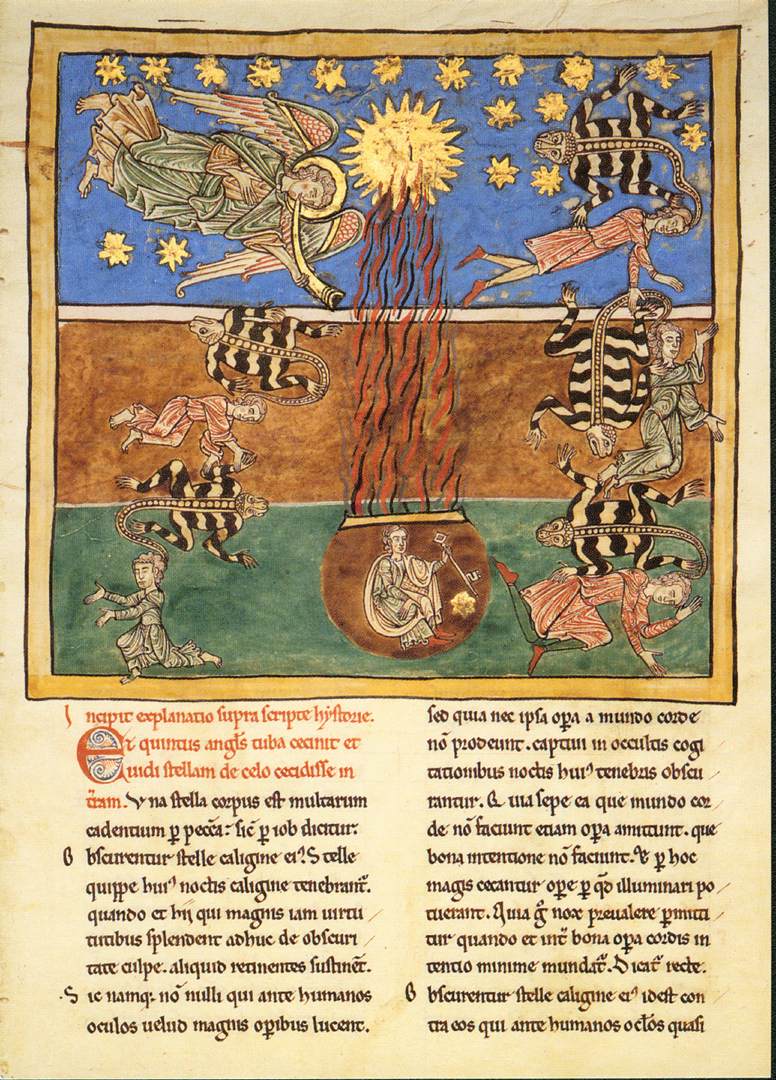 Incipit explanatio supra scripte hystorie.
Et quintus angl̃s tuba cecinit et
uidi stellam de celo cecidisse in
t̃ram. Vna stella corpus est multarum
cadentium ꝑ pecc̃a: sic̃ ꝑ iob dicitur.
Obscurentur stelle caligine ei⁹. Stelle
quippe hui⁹ noctis caligine tenebrant᷑.
quando et hii qui magnis iam uirtu
tutibus splendent adhuc de obscuri
tate culpe. aliquid retinentes sustinẽt.
Sic namq; nõ nulli qui ante humanos
oculos uelud magnis oꝑibus lucent.
sed quia nec ipsa oꝑa a mundo corde
nõ prodeunt. captiui in occultis cogi
tationibus noctis hui⁹ tenebris obscu
rantur. Et uia sepe ea que mundo cor
de nõ faciunt etiam oꝑa amittunt. que
bona intentione nõ faciunt. Et ꝑ hoc
magis cecantur oꝑe ꝑ qd̃ illuminari po
tuerant. Quia g̃ nox preualere ꝑmitti
tur quando et int̃ bona oꝑa cordis in
tentio minime mundat᷑. Dicat᷑ recte.
Obscurentur stelle caligine ei⁹ idest con
tra eos qui ante humanos ocl̃os quasi